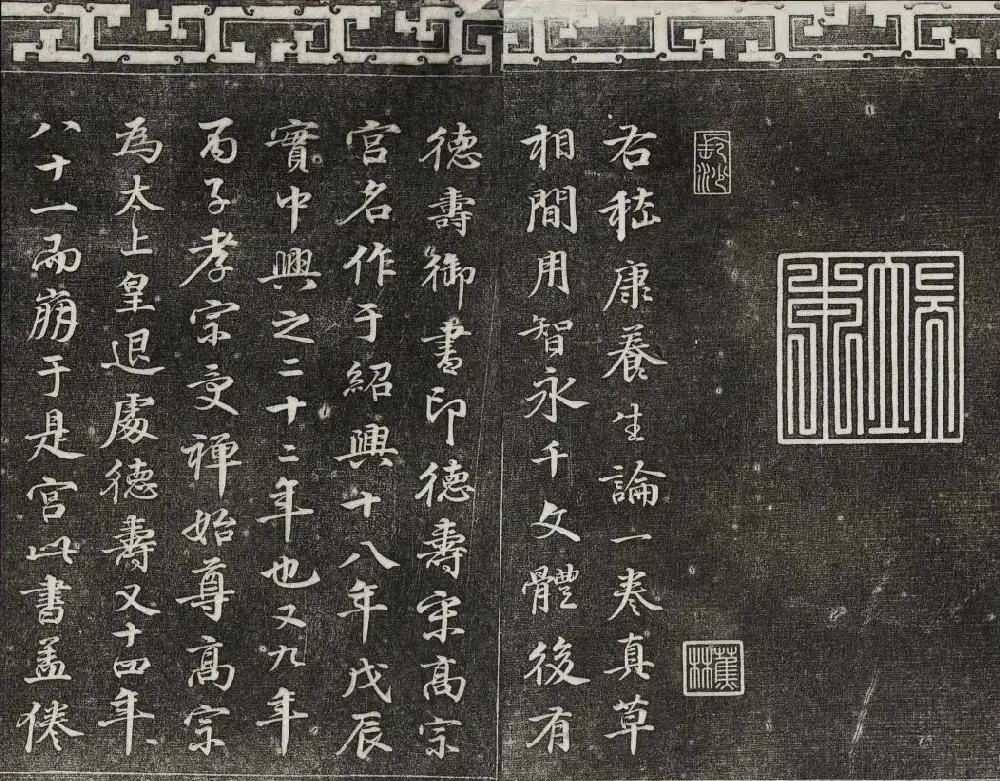 蕉林
右嵇康養生論一卷真草
相間用智永千文體後有
德壽御書印德壽宋高宗
宮名作于紹興十八年戊辰
實中興之二十二年也又九年
丙子孝宗受禪始尊高宗
為太上皇退處德壽又十四年
八十一而崩于是宮此書蓋倦